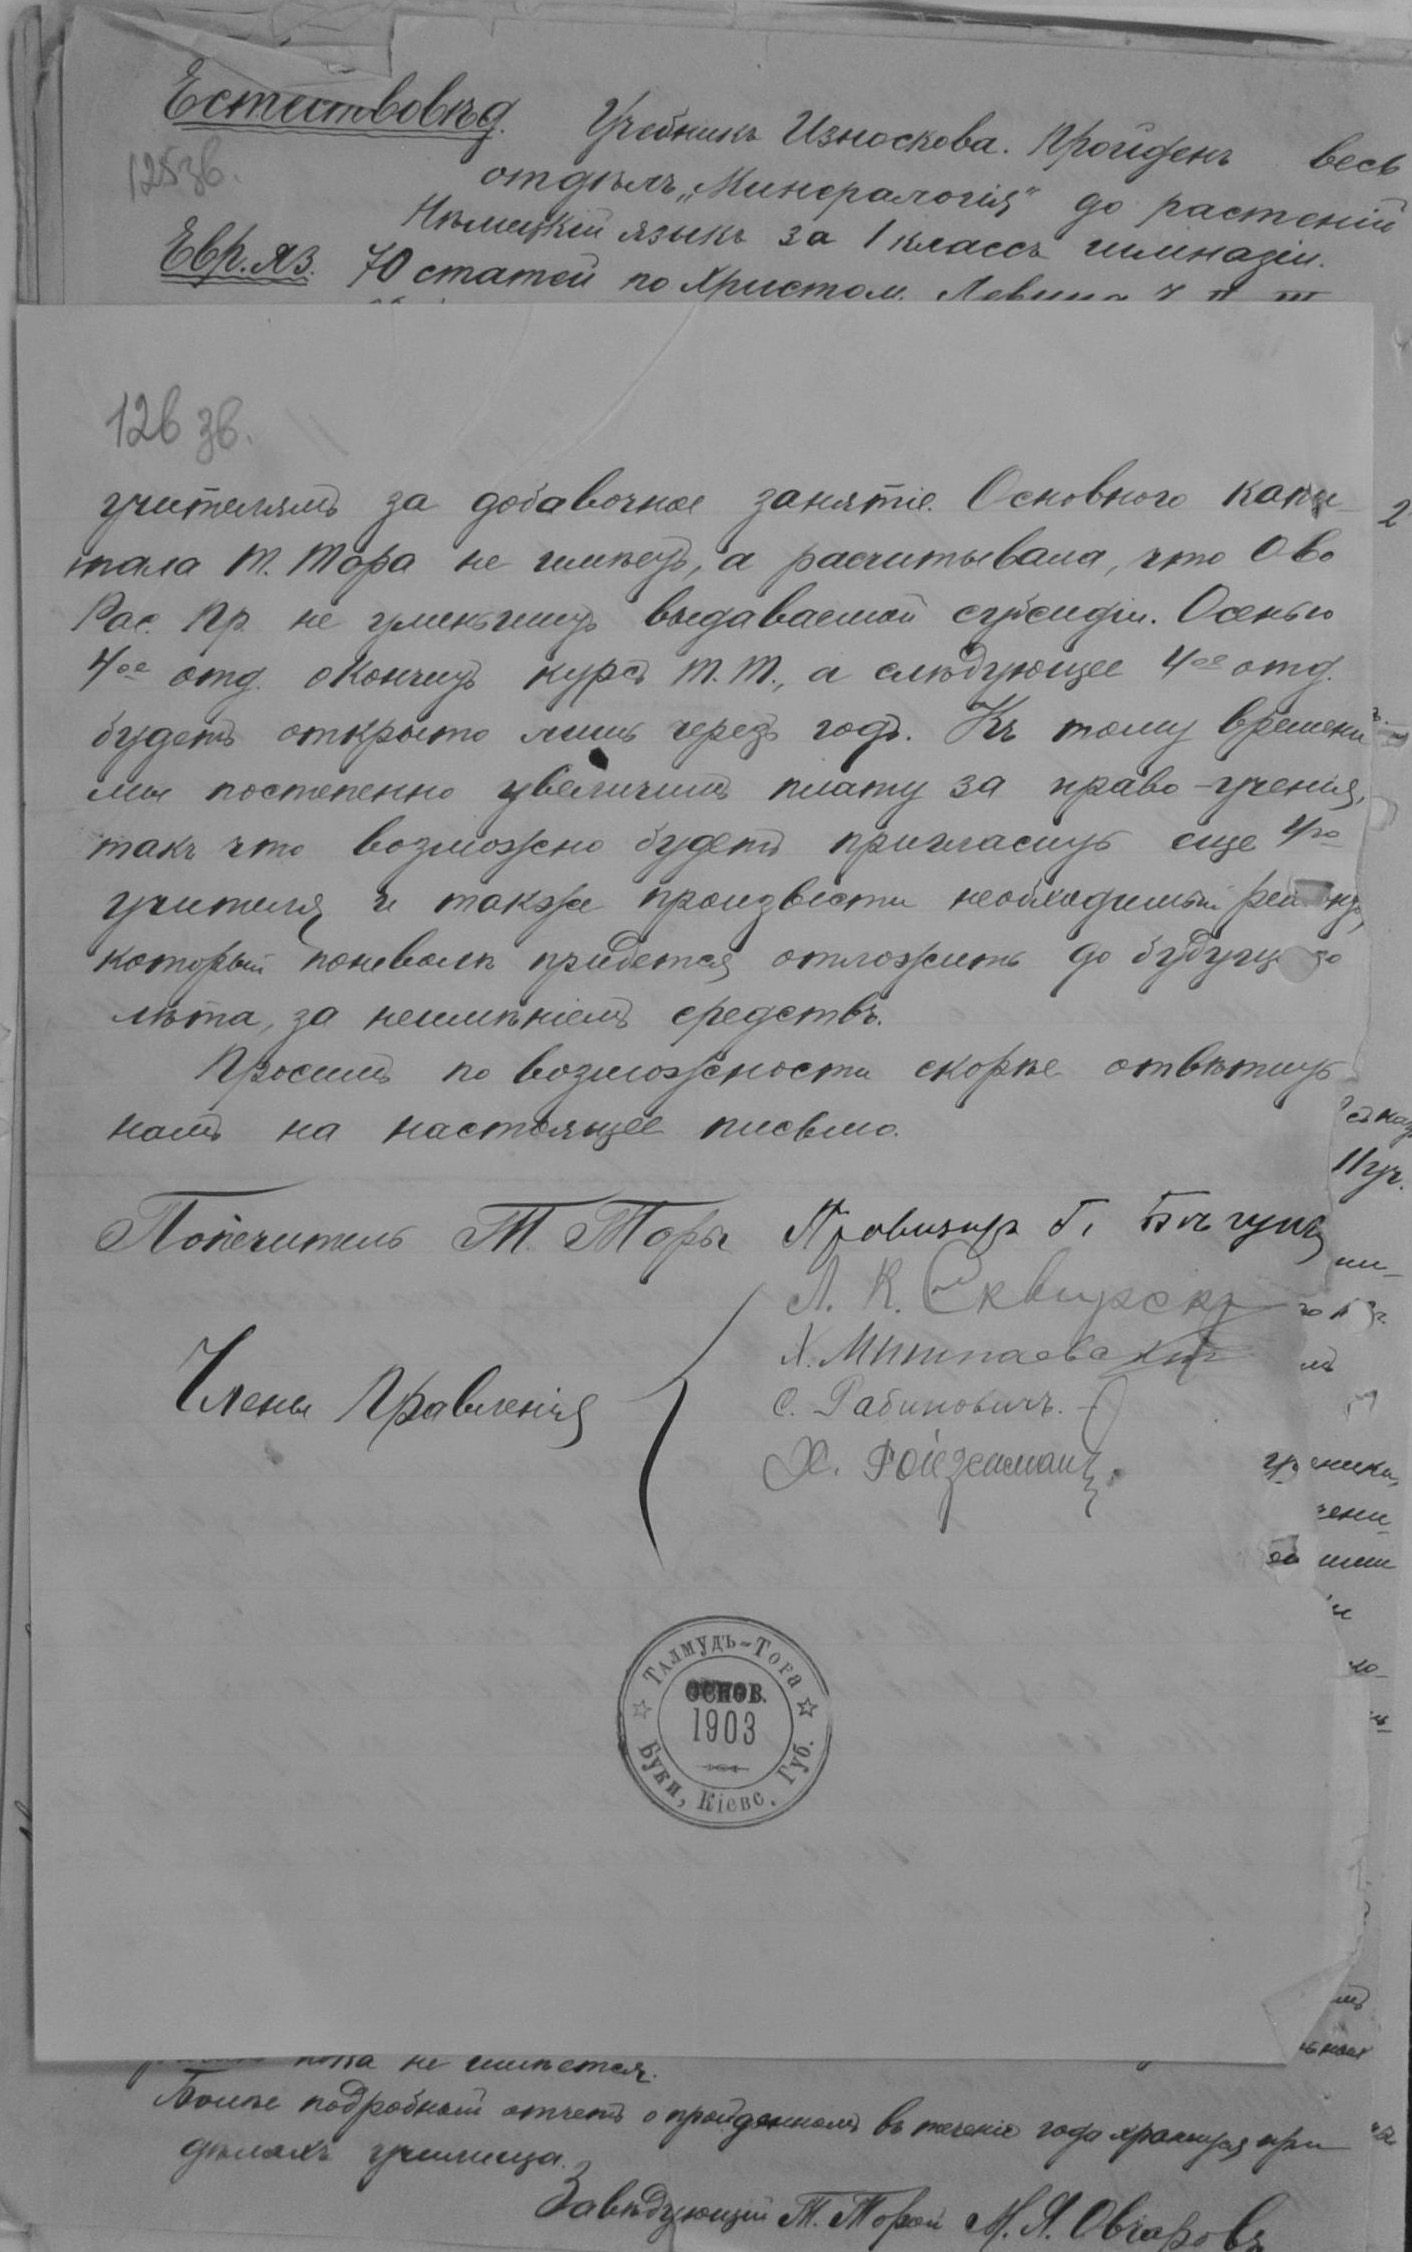 Естествовѣд. Учебникъ Износкова. Пройденъ весь
125 зв.
отдѣлъ „Минералогія" до растеній
Нѣмецкій языкъ за 1 классъ гимназіи.
Евр. яз. 70 статей по Христом. Левина
126 зв.
учителямъ за добавочное занятіе. Основного капи-
тала Т. Тора не имѣетъ, а расчитывала, что О во
Рас. Пр. не уменьшитъ выдаваемой субсидіи. Осенью
4ое отд. окончитъ курсъ Т. Т., а слѣдующее 4ое отд.
будетъ открыто лишь черезъ годъ. Къ тому времени
мы постепенно увеличимъ плату за право-ученія,
такъ что возможно будетъ пригласить еще 4го
учителя и также произвести необходимый ремонтъ,
который поневолѣ придется отложить до будущаго
лѣта, за неимѣніемъ средствъ.
Просимъ по возможности скорѣе отвѣтить
намъ на настоящее письмо.
Попечитель Т. Торы Провизоръ Г.
Члены Правленія
Л. К. Сквирскі
Х.
С. Рабиновичъ.
Х. Ройзенманъ
Талмудъ-Тора
основ.
1903
Буки, Кіевс. Губ.
пока не имѣется.
Болѣе подробный отчетъ о пройденномъ въ теченіе года хранится при
дѣлахъ училища.
Завѣдующій Т. Торой М. Я. Овчаровъ